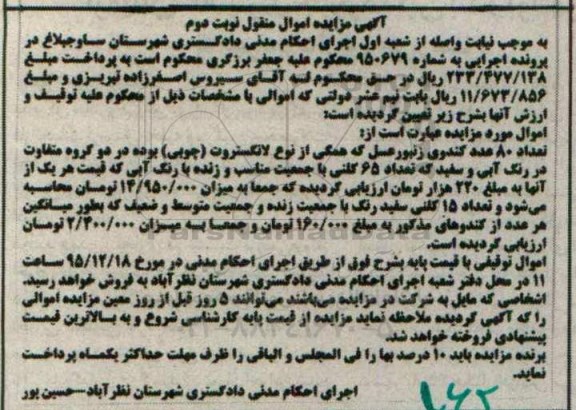 آگهی مزایده اموال منقول نوبت دوم
به موجب نیابت واصله از شعبه اول اجرای احکام مدنی دادگستری شهرستان ساوجبلاغ در
پرونده اجرایی به شماره ۹۵۰۶۷۹ محکوم علیه جعفر برزگری محکوم است به پرداخت مبلغ
۲۳۳/۴۷۷/۱۳۸ ریال در حق محکوم له آقای سیروس اصغرزاده تبریزی و مبلغ
۱۱/۶۷۳/۸۵۶ ریال بابت نیم عشر دولتی که اموالی با مشخصات ذیل از محکوم علیه توقیف و
ارزش آنها بشرح زیر تعیین گردیده است:
اموال مورد مزایده عبارت است از:
تعداد ۸۰ عدد کندوی زنبورعسل که همگی از نوع لانگستروت (چوبی) بوده در دو گروه متفاوت
در رنگ آبی و سفید که تعداد ۶۵ کلنی با جمعیت مناسب و زنده با رنگ آبی که قیمت هر یک از
آنها به مبلغ ۲۳۰ هزار تومان ارزیابی گردیده که جمعا به میزان ۱۴/۹۵۰/۰۰۰ تومان محاسبه
می‌شود و تعداد ۱۵ کلنی سفید رنگ با جمعیت زنده و جمعیت متوسط و ضعیف که بطور میانگین
هر عدد از کندوهای مذکور به مبلغ ۱۶۰/۰۰۰ تومان و جمعا به میزان ۲/۴۰۰/۰۰۰ تومان
ارزیابی گردیده است.
اموال توقیفی با قیمت پایه بشرح فوق از طریق اجرای احکام مدنی در مورخ ۹۵/۱۲/۱۸ ساعت
۱۱ در محل دفتر شعبه اجرای احکام مدنی دادگستری شهرستان نظرآباد به فروش خواهد رسید.
اشخاصی که مایل به شرکت در مزایده می‌باشند می‌توانند ۵ روز قبل از روز معین مزایده اموالی
را که آگهی گردیده ملاحظه نماید مزایده از قیمت پایه کارشناسی شروع و به بالاترین قیمت
پیشنهادی فروخته خواهد شد.
برنده مزایده باید ۱۰ درصد بها را فی المجلس و الباقی را ظرف مهلت حداکثر یکماه پرداخت
نماید.
اجرای احکام مدنی دادگستری شهرستان نظرآباد-حسین پور